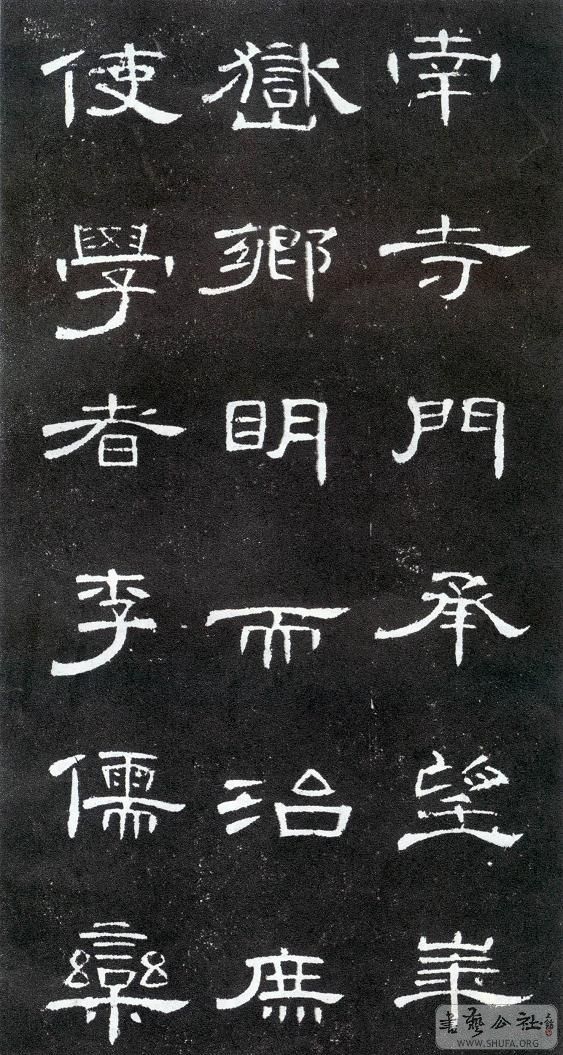 南寺門承望華
嶽鄉明而治庶
使學者李儒欒
書藝公社
WWW.SHUFA.ORG